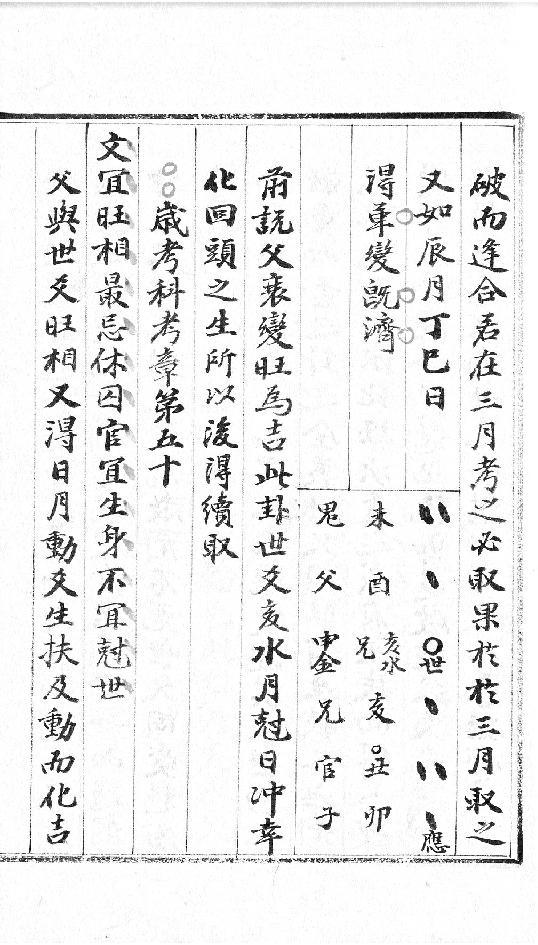 破而逢合若在三月考之必取果於於三月取之
又如辰月丁巳日
應
世
得革變既濟
未酉亥丑卯
亥水
兄
鬼父申金兄官子
前説父衰變旺爲吉此卦世爻亥水月尅日冲幸
化回頭之生所以後得續取
歲考科考章第五十
文宜旺相最忌休囚官宜生身不宜尅世
父與世爻旺相又得日月動爻生扶及動而化吉